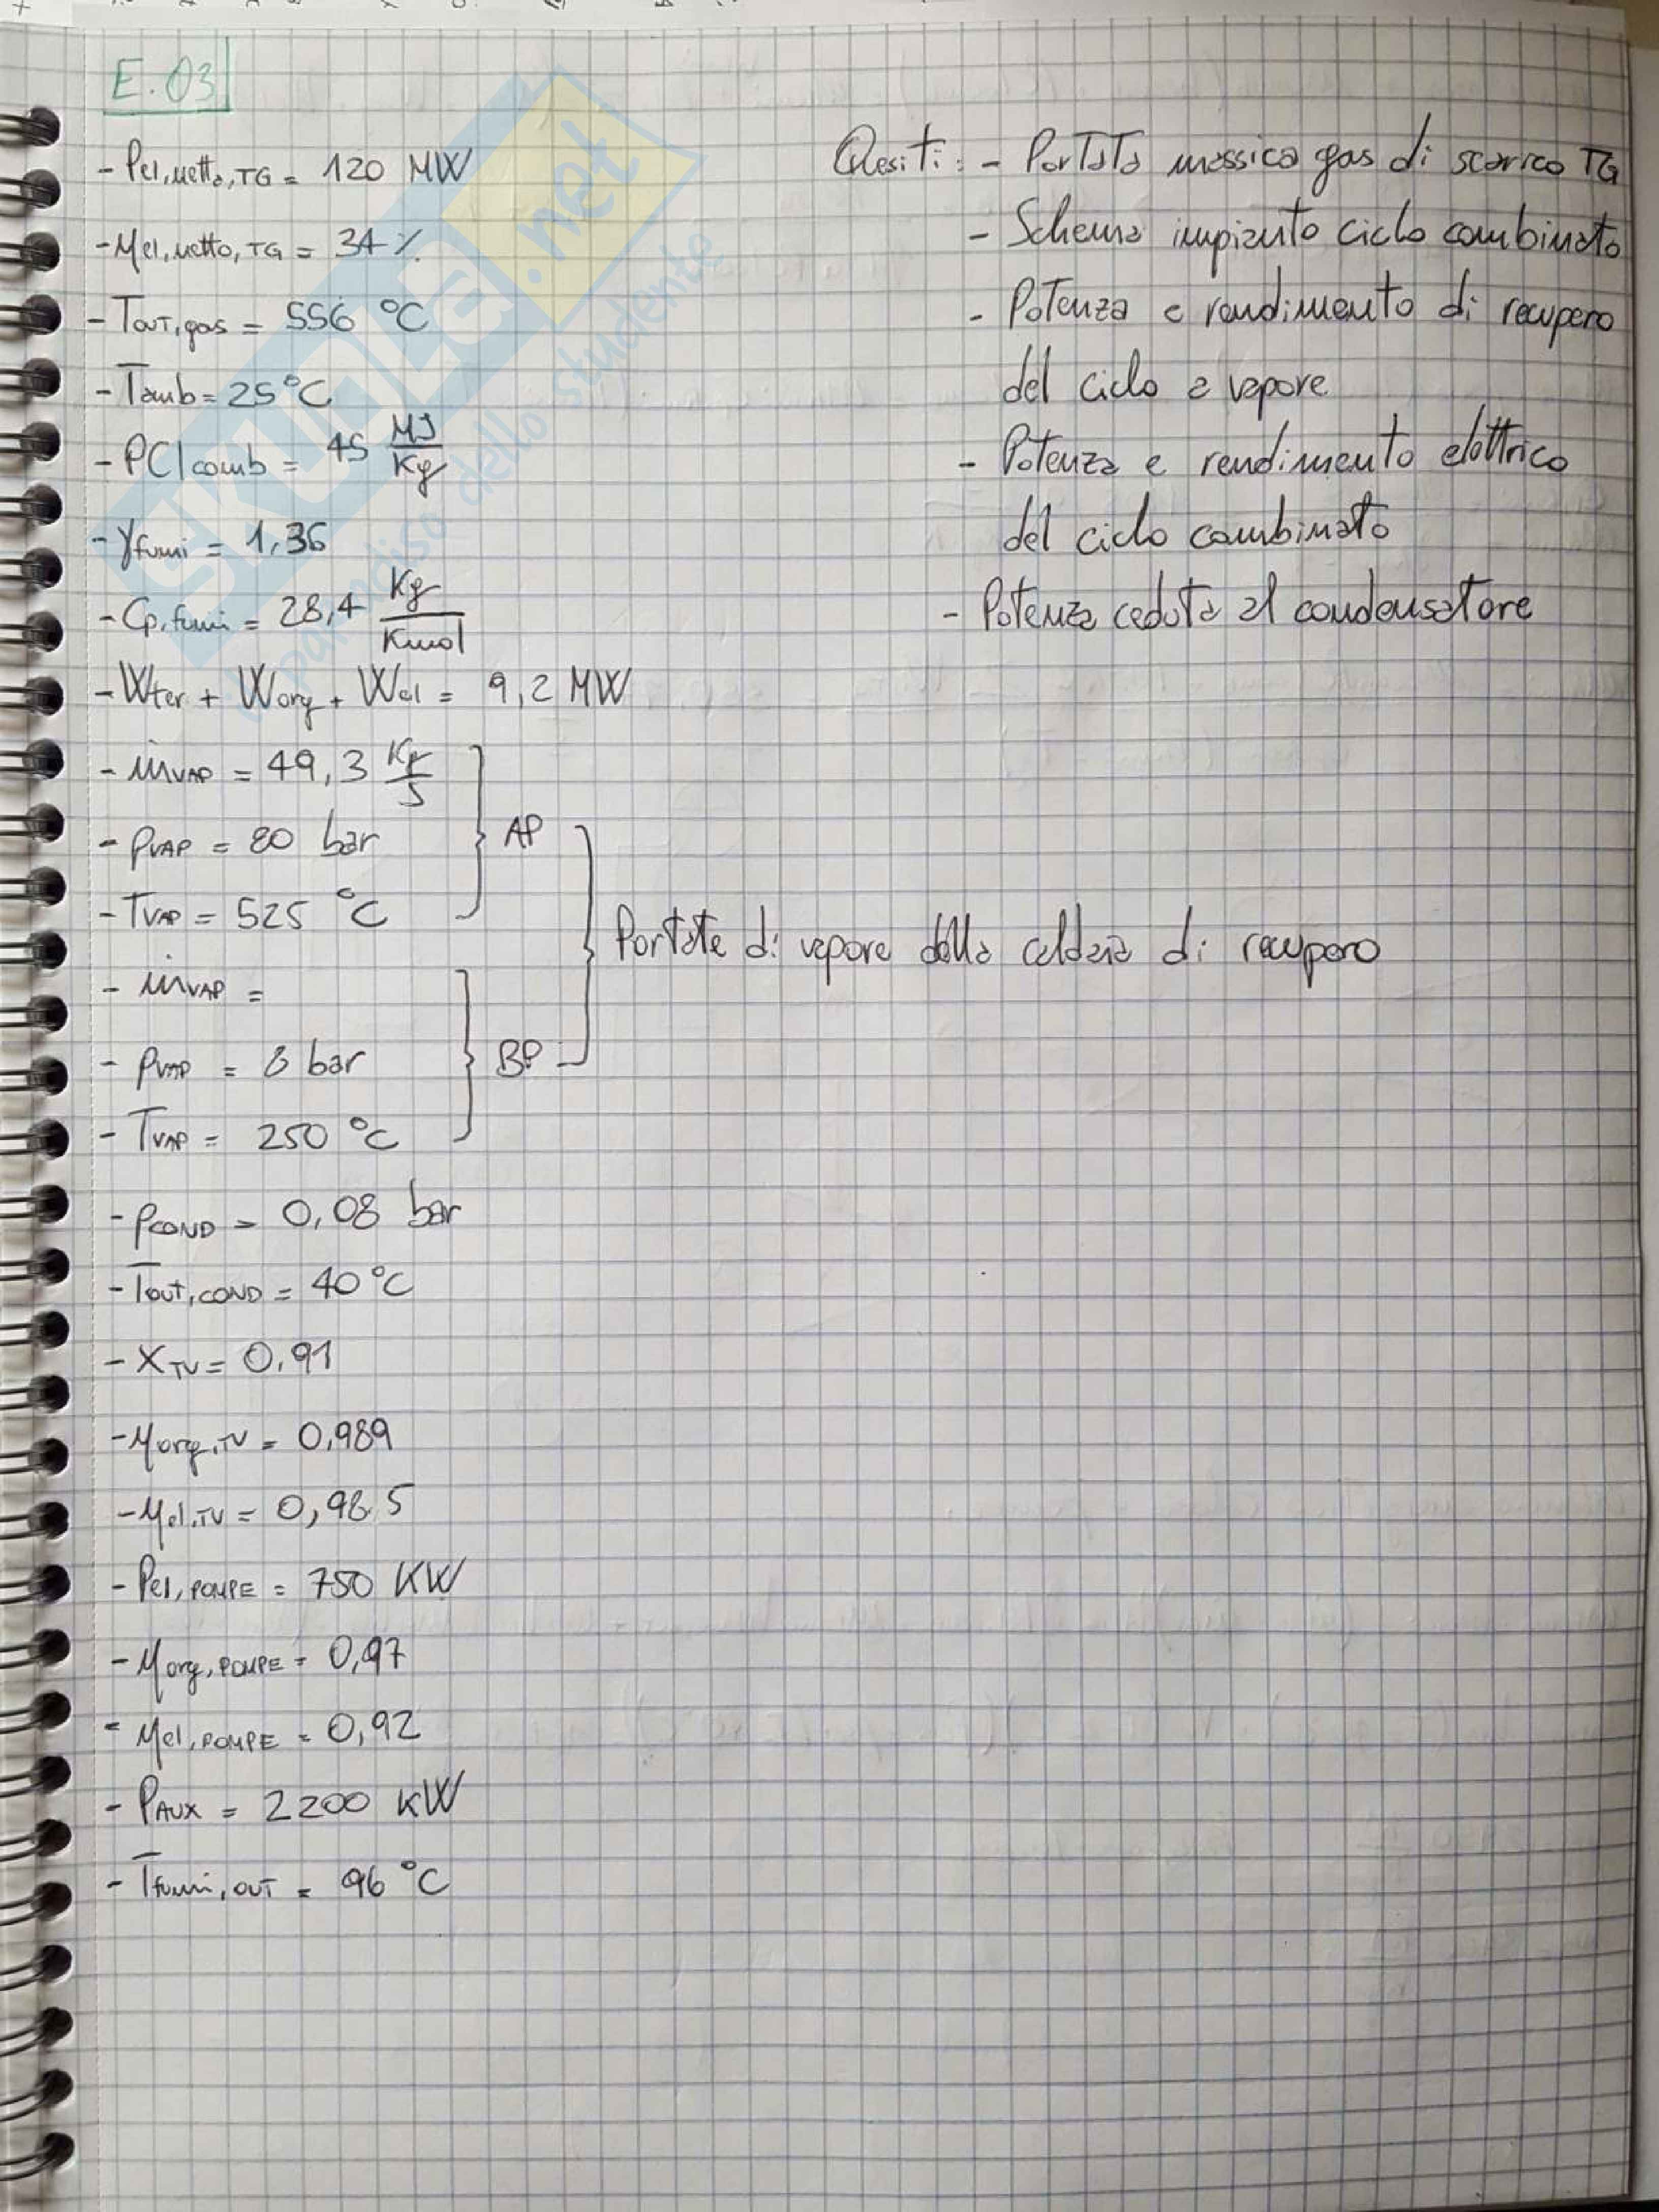 E.03
- Pel,netto,TG = 120 MW
- ηel,netto,TG = 34 %
- Tout,gas = 556 °C
- Tamb = 25 °C
- PCI comb = 45 MJ/Kg
- γfumi = 1,36
- Cp,fumi = 28,4 Kg/Kmol
- Wter + Worg + Wel = 9,2 MW
- ṁVAP = 49,3 Kg/s
- pVAP = 80 bar } AP
- TVAP = 525 °C
Portate di vapore della caldaia di recupero
- ṁVAP =
- pVAP = 8 bar } BP
- TVAP = 250 °C
- pCOND = 0,08 bar
- Tout,COND = 40 °C
- XTV = 0,91
- ηorg,TV = 0,989
- ηel,TV = 0,985
- Pel,POMPE = 750 KW
- ηorg,POMPE = 0,97
- ηel,POMPE = 0,92
- PAUX = 2200 KW
- Tfumi,OUT = 96 °C
Quesiti: - Portata massica gas di scarico TG
- Schema impianto ciclo combinato
- Potenza e rendimento di recupero
del ciclo a vapore
- Potenza e rendimento elettrico
del ciclo combinato
- Potenza ceduta al condensatore
SKUOLA.net
il paradiso dello studente